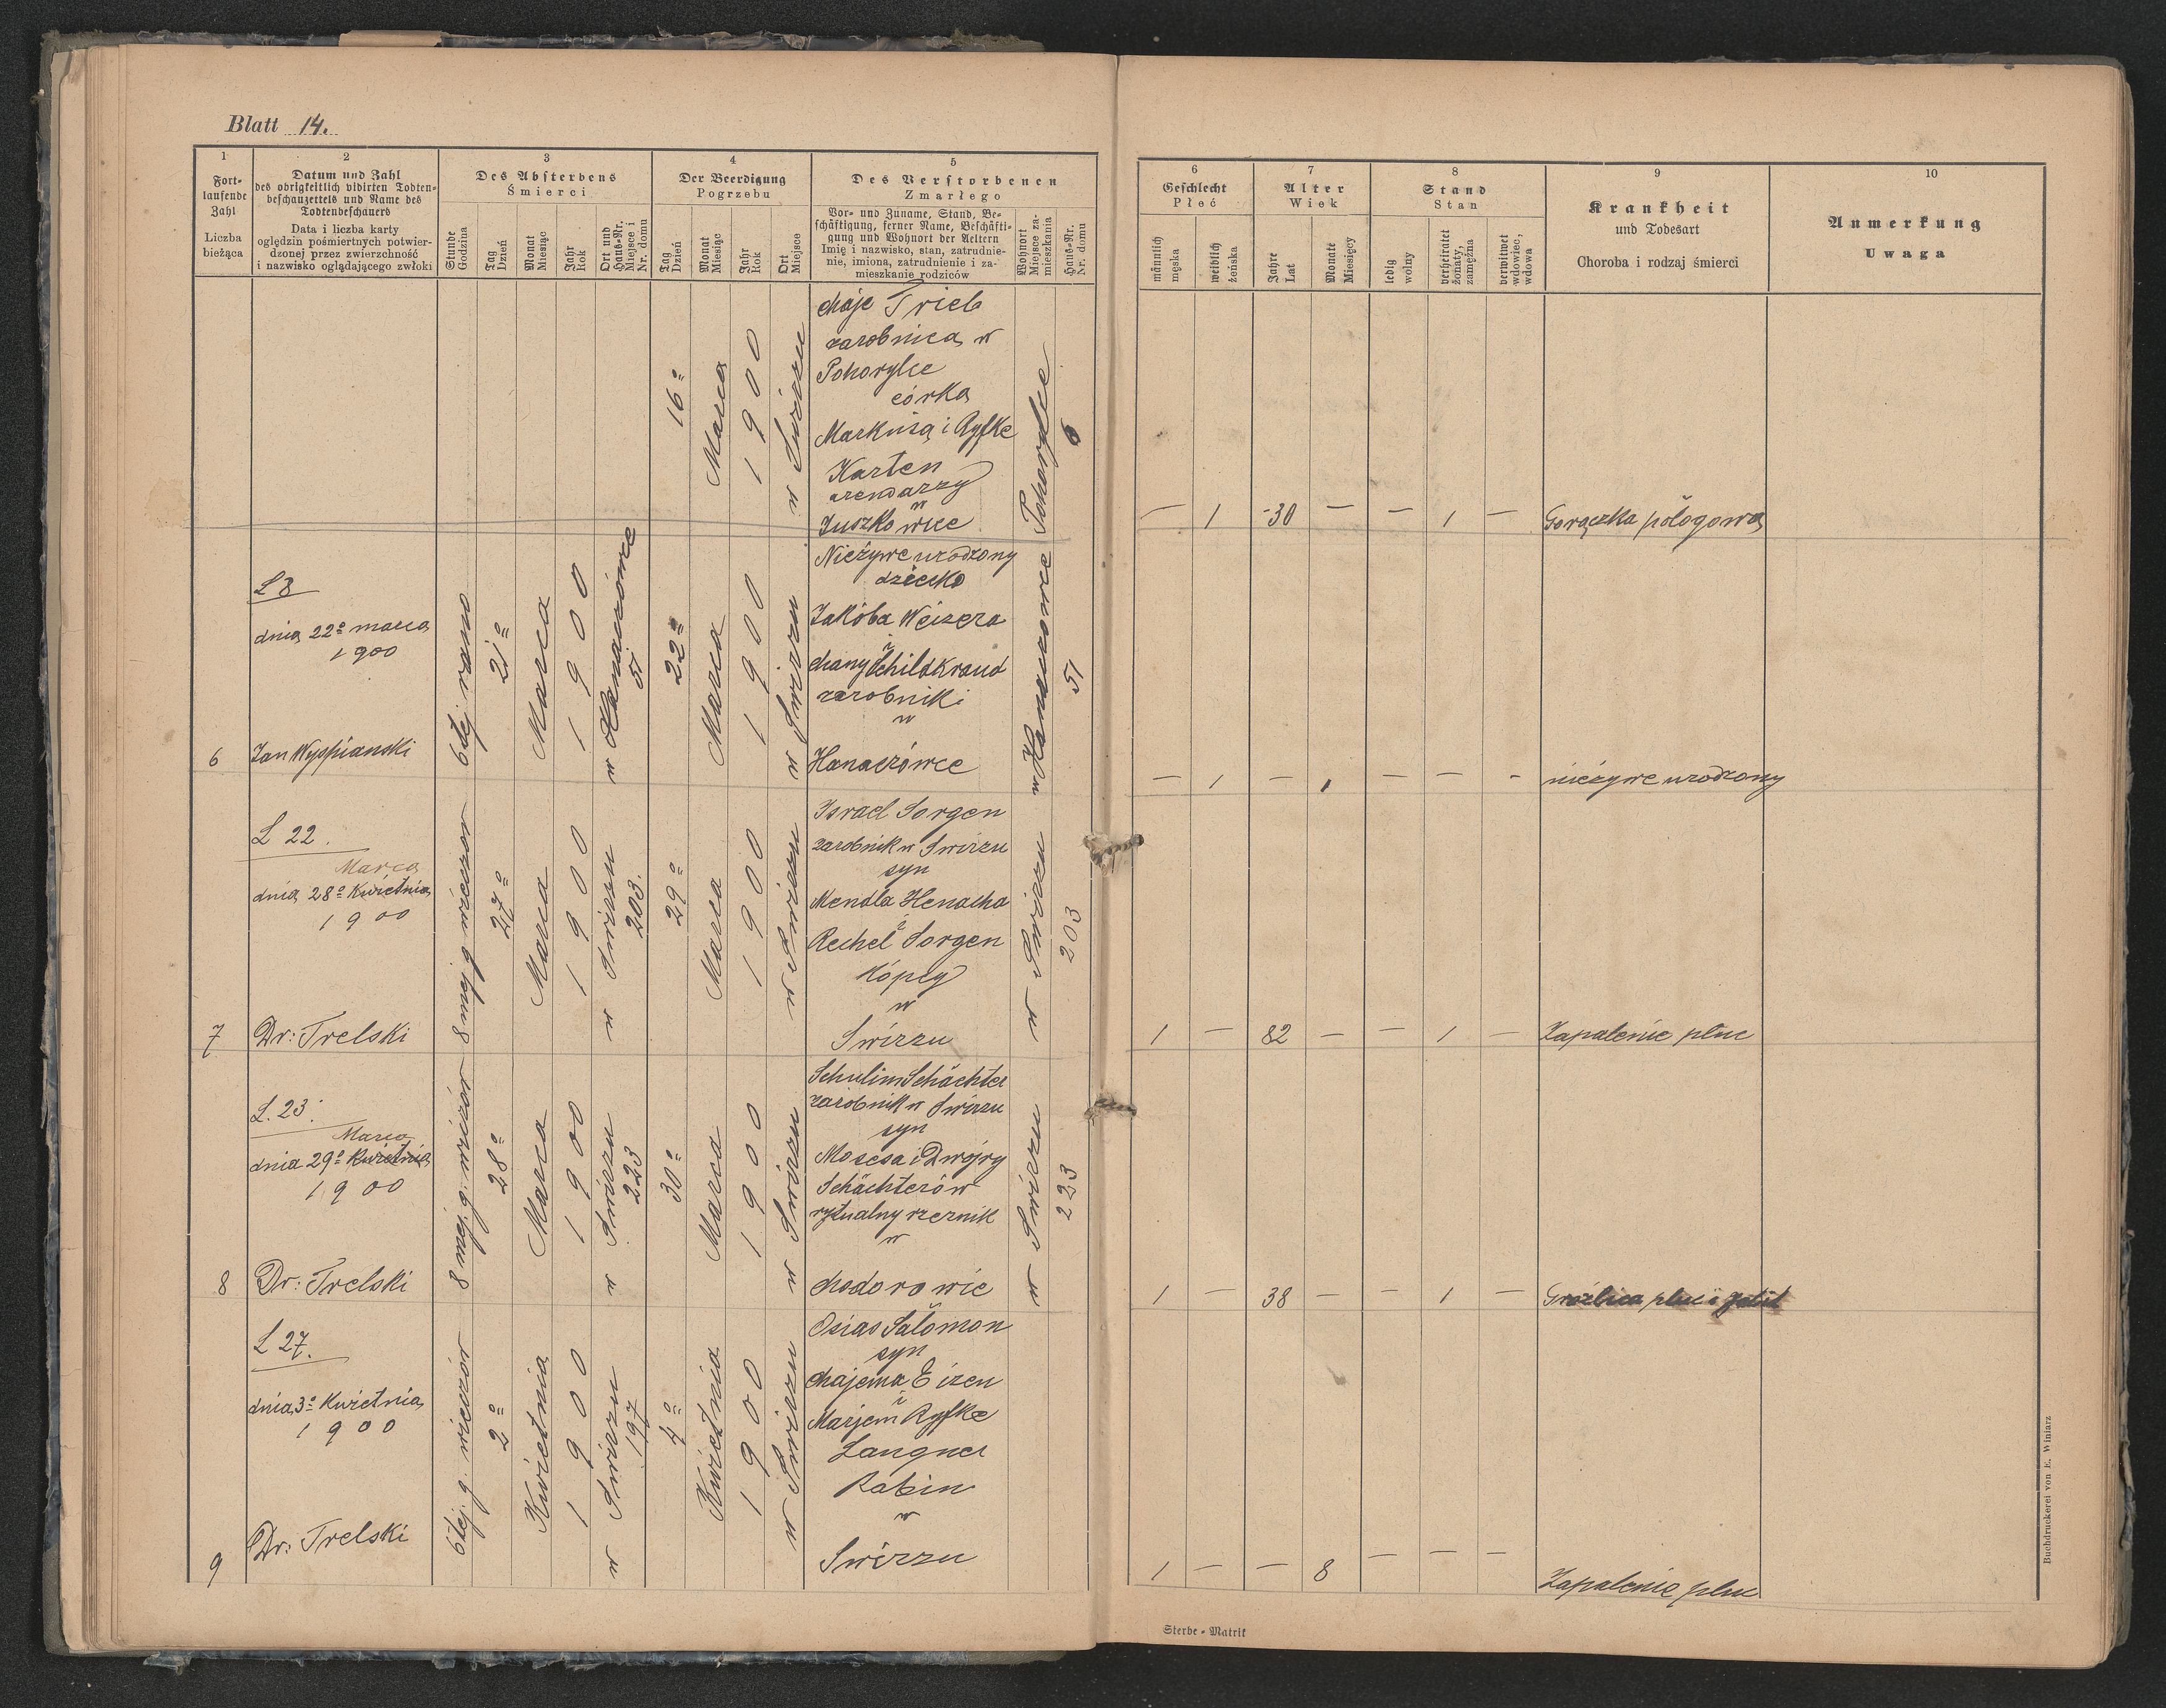 Blatt 14.
1
Fort-
laufende
Zahl
Liczba
bieżąca
2
Datum und Zahl
des obrigkeitlich vidirten Todten-
beschauzettels und Name des
Todtenbeschauers
Data i liczba karty
oględzin pośmiertnych potwier-
dzonej przez zwierzchność
i nazwisko oglądającego zwłoki
3
Des Absterbens
Śmierci
Stunde
Godzina
Tag
Dzień
Monat
Miesiąc
Jahr
Rok
Ort und
Haus-Nr.
Miejsce i
Nr. domu
4
Der Beerdigung
Pogrzebu
Tag
Dzień
Monat
Miesiąc
Jahr
Rok
Ort
Miejsce
5
Des Verstorbenen
Zmarłego
Vor- und Zuname, Stand, Be-
schäftigung, ferner Name, Beschäfti-
gung und Wohnort der Aeltern
Imię i nazwisko, stan, zatrudnie-
nie, imiona, zatrudnienie i za-
mieszkanie rodziców
Wohnort
Miejsce za-
mieszkania
Haus-Nr.
Nr. domu
6
Geschlecht
Płeć
männlich
męska
weiblich
żeńska
7
Alter
Wiek
Jahre
Lat
Monate
Miesięcy
8
Stand
Stan
ledig
wolny
verheiratet
żonaty,
zamężna
verwitwet
wdowiec,
wdowa
9
Krankheit
und Todesart
Choroba i rodzaj śmierci
10
Anmerkung
Uwaga
16º
Marca
1900
w Swirzu
Chaje Trieb
zarobnica w
Pohorylce
córka
Markusa i Ryfke
Karten
arendarzy
w
Juszkowice
Pohorylce
6
— 1 -30 — — 1 —
Gorączka pologowa
L 8
dnia 22º marca
1900
6
Jan Wyspianski
6tej rano
21º
Marca
1900
w Hanaczówce
51
22º
Marca
1900
w Swirzu
Nieżywe urodzony
dziecko
Jakóba Weizera
i
Chany Schildkraud
zarobniki
w
Hanaczówce
w Hanaczowce
51
— 1 — 1 — — -
nieżywe urodzony
L 22.
Marca
dnia 28º Kwietnia
1900
7
Dr: Trelski
8mej g wieczor
27º
Marca
1900
w Swirzu
203.
29º
Marca
1900
w Swirzu
Israel Sorgen
zarobnik w Swirzu
syn
Mendla Henacha
i
Rechel Sorgen
Kópcy
w
Swirzu
w Swirzu
203
1 — 82 — — 1 —
Zapalenie pluc
L. 23.
Marca
dnia 29º Kwietnia
1900
8
Dr: Trelski
8mej. g. wieczór
28º
Marca
1900
w Swirzu
223
30º
Marca
1900
w Swirzu
Schulim Schächter
zarobnik w Swirzu
syn
Mosesa i Dwojry
Schächterów
rytualny rzeznik
w
Chodorowie
w Swirzu
223
1 — 38 — — 1 —
Gruzlica pluc i
L 27.
dnia 3º Kwietnia
1900
9
Dr: Trelski
6tej. g. wieczór
2º
Kwietnia
1900
w Swirzu
197
4º
Kwietnia
1900
w Swirzu
Osias Salomon
syn
Chajema Eizen
i
Marjem Ryfke
Langner
Rabin
w
Swirzu
1 — — 8 — — —
Zapalenie pluc
Sterbe-Matrik
Buchdruckerei von E. Winiarz